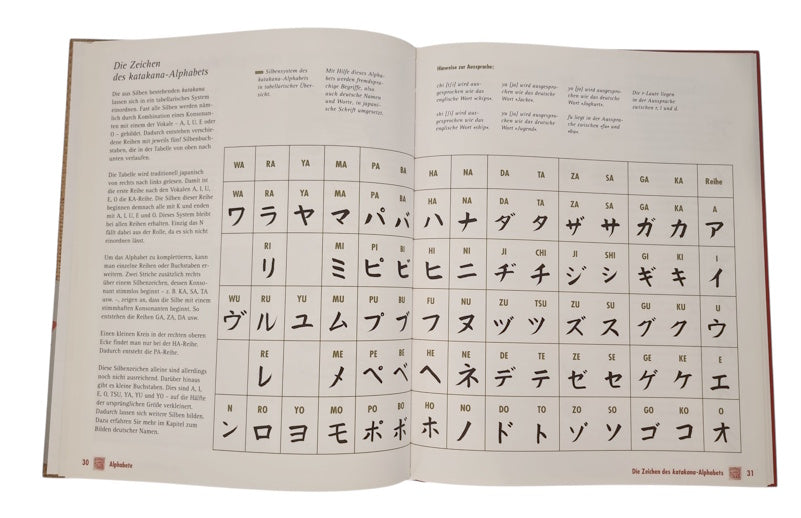 Die Zeichen
des katakana-Alphabets
Die aus Silben bestehenden katakana
lassen sich in ein tabellarisches System
einordnen. Fast alle Silben werden näm-
lich durch Kombination eines Konsonan-
ten mit einem der Vokale – A, I, U, E oder
O – gebildet. Dadurch entstehen verschie-
dene Reihen mit jeweils fünf Silbenbuch-
staben, die in der Tabelle von oben nach
unten verlaufen.
Die Tabelle wird traditionell japanisch
von rechts nach links gelesen. Damit ist
die erste Reihe nach den Vokalen A, I, U,
E, O die KA-Reihe. Die Silben dieser Reihe
beginnen demnach alle mit K und enden
mit A, I, U, E und O. Dieses System bleibt
bei allen Reihen erhalten. Einzig das N
fällt dabei aus der Rolle, da es sich nicht
einordnen lässt.
Um das Alphabet zu komplettieren, kann
man einzelne Reihen oder Buchstaben er-
weitern. Zwei Striche zusätzlich rechts
über einem Silbenzeichen, dessen Konso-
nant stimmlos beginnt – z. B. KA, SA, TA
usw. –, zeigen an, dass die Silbe mit einem
stimmhaften Konsonanten beginnt. So
entstehen die Reihen GA, ZA, DA usw.
Einen kleinen Kreis in der rechten oberen
Ecke findet man nur bei der HA-Reihe.
Dadurch entsteht die PA-Reihe.
Diese Silbenzeichen alleine sind allerdings
noch nicht ausreichend. Darüber hinaus
gibt es kleine Buchstaben. Dies sind A, I,
E, O, TSU, YA, YU und YO – auf die Hälfte
der ursprünglichen Größe verkleinert.
Dadurch lassen sich weitere Silben bilden.
Dazu erfahren Sie mehr im Kapitel zum
Bilden deutscher Namen.
30 Alphabete
Silbensystem des
katakana-Alphabets
in tabellarischer Über-
sicht.
Mit Hilfe dieses Alpha-
bets werden fremdspra-
chige Begriffe, also
auch deutsche Namen
und Worte, in japani-
sche Schrift umgesetzt.
Hinweise zur Aussprache:
chi [tʃi] wird aus-
gesprochen wie das
englische Wort »chip«.
shi [ʃi] wird aus-
gesprochen wie das
englische Wort »ship«.
ya [ja] wird ausgespro-
chen wie das deutsche
Wort »Jacke«.
yu [ju] wird ausgespro-
chen wie das deutsche
Wort »Jugend«.
yo [jo] wird ausgespro-
chen wie das deutsche
Wort »Joghurt«.
fu liegt in der Ausspra-
che zwischen »fu« und
»hu«.
Die r-Laute liegen
in der Aussprache
zwischen r, l und d.
WA RA YA MA PA BA HA NA DA TA ZA SA GA KA Reihe
WA RA YA MA PA BA HA NA DA TA ZA SA GA KA A
ワ ラ ヤ マ パ バ ハ ナ ダ タ ザ サ ガ カ ア
RI MI PI BI HI NI JI CHI JI SHI GI KI I
リ ミ ピ ビ ヒ ニ ヂ チ ジ シ ギ キ イ
WU RU YU MU PU BU FU NU ZU TSU ZU SU GU KU U
ヴ ル ユ ム プ ブ フ ヌ ヅ ツ ズ ス グ ク ウ
RE ME PE BE HE NE DE TE ZE SE GE KE E
レ メ ペ ベ ヘ ネ デ テ ゼ セ ゲ ケ エ
N RO YO MO PO BO HO NO DO TO ZO SO GO KO O
ン ロ ヨ モ ポ ボ ホ ノ ド ト ゾ ソ ゴ コ オ
Die Zeichen des katakana-Alphabets 31